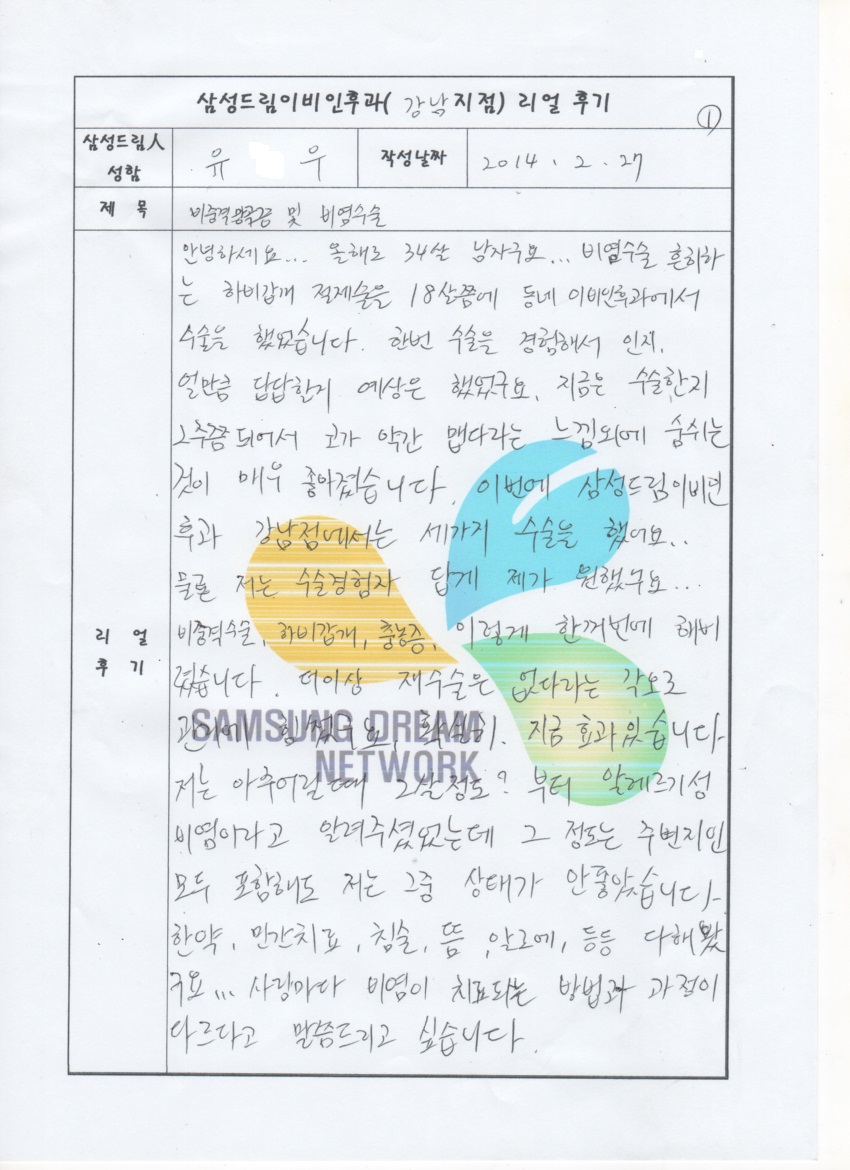 삼성드림이비인후과( 강남 지점) 리얼 후기
①
삼성드림人 성함
유 우
작성날짜
2014. 2. 27
제 목
비중격만곡증 및 비염수술
리 얼
후 기
안녕하세요... 올해로 34살 남자구요... 비염수술 흔히하
는 하비갑개 절제술을 18살쯤에 동네 이비인후과에서
수술을 했었습니다. 한번 수술을 경험해서 인지,
얼만큼 답답할지 예상은 했었구요, 지금은 수술한지
2주쯤되어서 코가 약간 맵다라는 느낌외에 숨쉬는
것이 매우 좋아졌습니다. 이번에 삼성드림이비인
후과 강남점에서는 세가지 수술을 했어요..
물론 저는 수술경험자 답게 제가 원했구요...
비중격수술, 하비갑개, 축농증, 이렇게 한꺼번에 해버
렸습니다. 더이상 재수술은 없다라는 각오로
확실히. 지금 효과있습니다
SAMSUNG DREAM
NETWORK
저는 아주어릴때 2살정도? 부터 알레르기성
비염이라고 알려주셨었는데 그 정도는 주변지인
모두 포함해도 저는 그중 상태가 안좋았습니다
한약, 민간치료, 침술, 뜸, 알로에, 등등 다해봤
구요... 사람마다 비염이 치료되는 방법과 과정이
다르다고 말씀드리고 싶습니다.